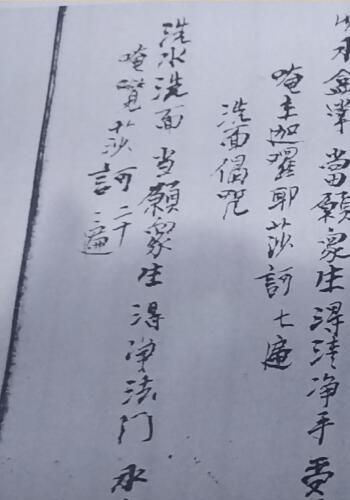 水盥掌當願衆生得清净手受
唵主迦囉耶莎訶七遍
洗面偈咒
洗水洗面当願衆生得净法门永
唵㘕莎訶二十
三遍